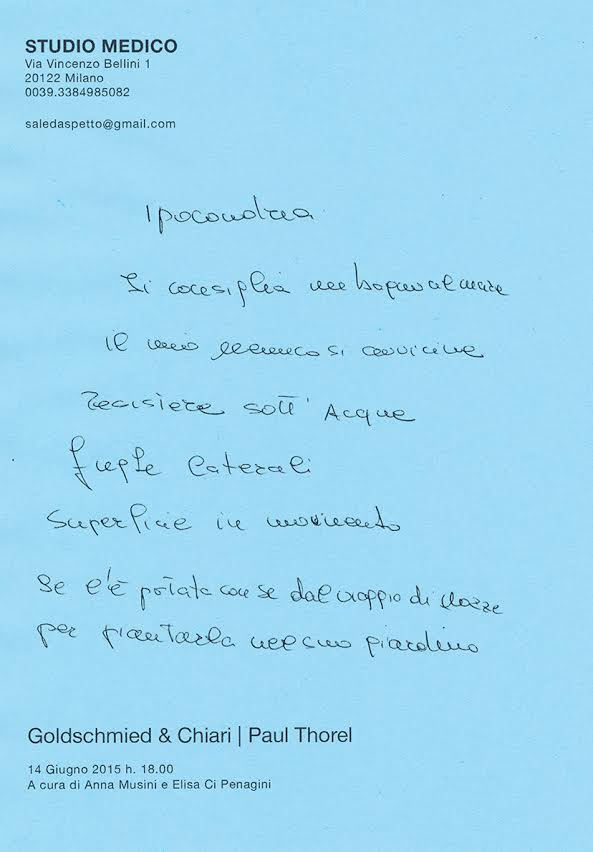 STUDIO MEDICO
Via Vincenzo Bellini 1
20122 Milano
0039.3384985082
saledaspetto@gmail.com
Ipocondrea
Si consiglia un bagno al mare
Il mio nemico si avvicina
Resistere sott' Acqua
Fughe Laterali
Superficie in movimento
Se l'è portata con se dal viaggio di Nozze
per piantarla nel suo giardino
Goldschmied & Chiari | Paul Thorel
14 Giugno 2015 h. 18.00
A cura di Anna Musini e Elisa Ci Penagini